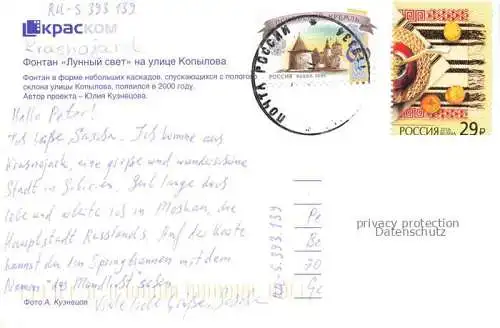 RU-S 393 139
краском
Krasnojarsk
Фонтан «Лунный свет» на улице Копылова
Фонтан в форме небольших каскадов, спускающихся с пологого
склона улицы Копылова, появился в 2000 году.
Автор проекта – Юлия Кузнецова.
Hallo Peter!
Ich heiße Sascha. Ich komme aus
Krasnojarsk, eine große und wunderschöne
Stadt in Sibirien. Seit lange
lebe und arbeite ich in Moskau, die
Hauptstadt Russlands. Auf der Karte
kannst du ein Springbrunnen mit dem
Namen "des Mondlicht" sehen.
Viele liebe Grüße, Sascha
Фото А. Кузнецов
ПСКОВСКИЙ КРЕМЛЬ
РОССИЯ
ПОЧТА РОССИИ
РОССИЯ
29₽
RU-S 393 139
Pe
Be
70
Ge
privacy protection
Datenschutz